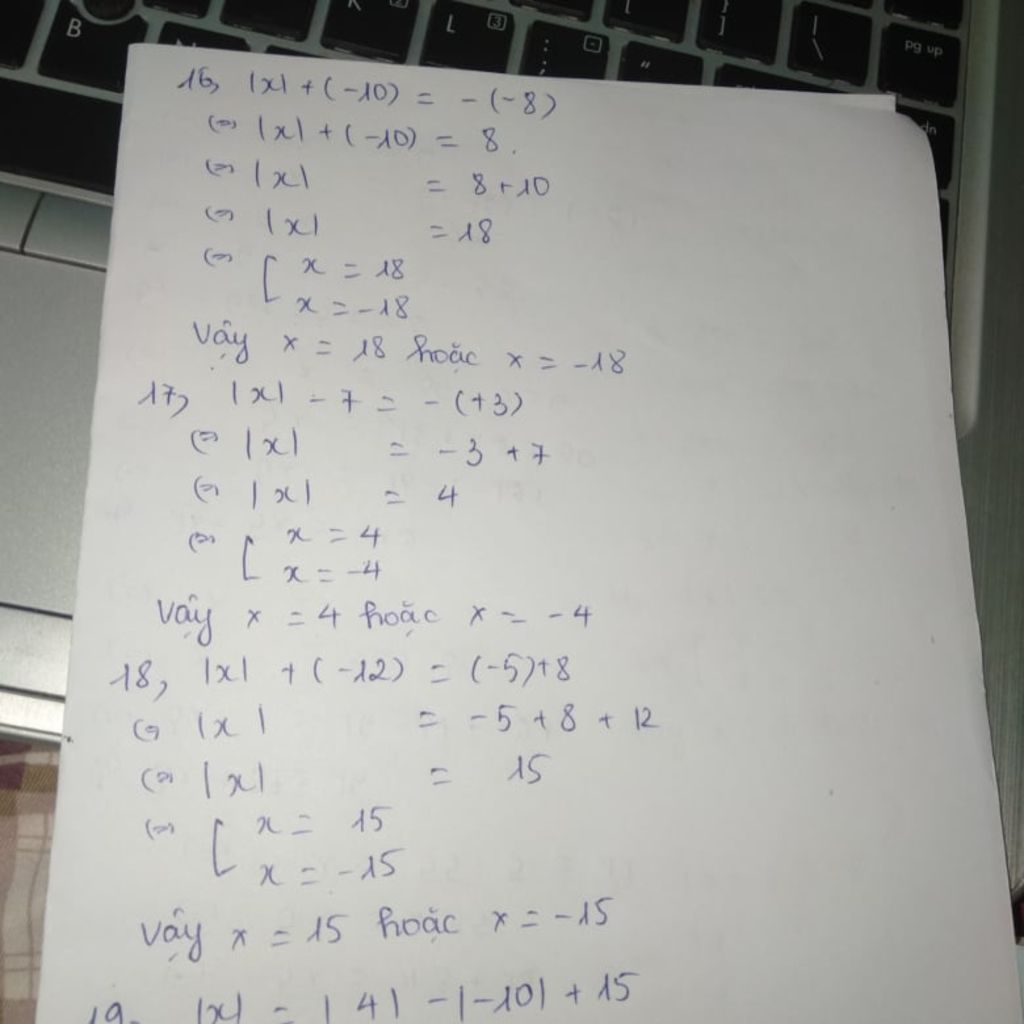 B
K
L
pg up
dn
16, |x| + (-10) = -(-8)
⇔ |x| + (-10) = 8.
⇔ |x| = 8 + 10
⇔ |x| = 18
⇔ [ x = 18
x = -18
Vậy x = 18 hoặc x = -18
17, |x| - 7 = -(+3)
⇔ |x| = -3 + 7
⇔ |x| = 4
⇔ [ x = 4
x = -4
Vậy x = 4 hoặc x = -4
18, |x| + (-12) = (-5)+8
⇔ |x| = -5 + 8 + 12
⇔ |x| = 15
⇔ [ x = 15
x = -15
Vậy x = 15 hoặc x = -15
19, |x| = |4| - |-10| + 15